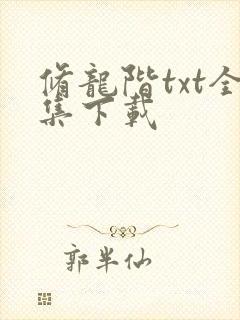 脩龍階txt全
集下載
郭半仙